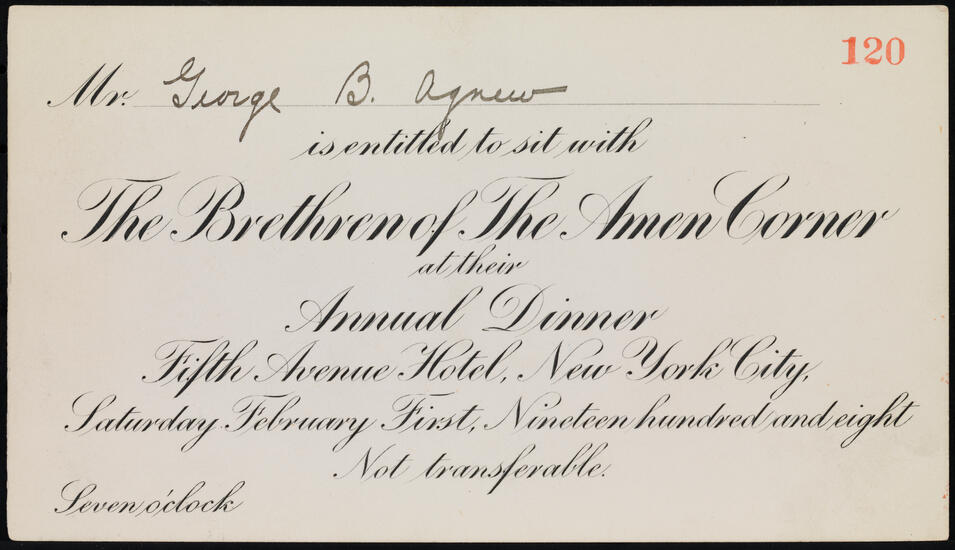 120
Mr. George B. Agnew
is entitled to sit with
The Brethren of The Amen Corner
at their
Annual Dinner
Fifth Avenue Hotel, New York City,
Saturday February First, Nineteen hundred and eight
Not transferable.
Seven o'clock